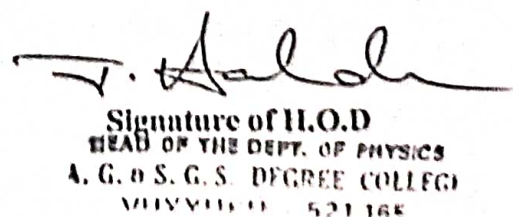 Signature of H.O.D
HEAD OF THE DEPT. OF PHYSICS
A. G. & S. G. S. DEGREE COLLEGE
521 165